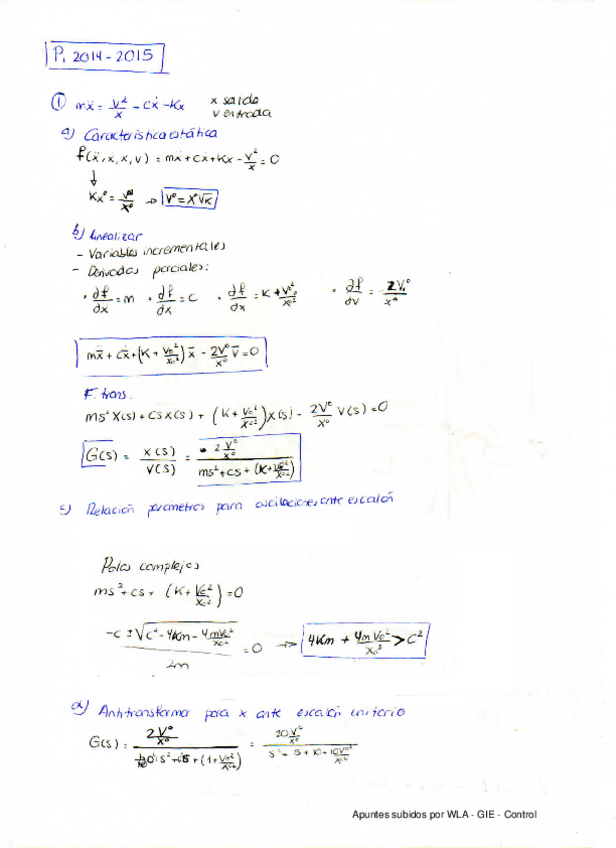 P. 2014-2015
① mẍ = V²/x - Cẋ - Kx   x salida
v entrada
a) Característica estática
f(ẍ, ẋ, x, v) = mẍ + cẋ + Kx - V²/x = 0
↓
→ V° = X°√K
b) Linealizar
- Variables incrementales
- Derivadas parciales:
· df/dx = m · df/dx = c · df/dx = K + V₀²/X₀² · df/dV = -2V₀/x°
mẍ + cẋ + (K + V₀²/X₀²) x̄ - 2V°/X° v̄ = 0
F. trans.
ms² X(s) + CS X(s) + (K + V₀²/X₀²) X(s) - 2V°/X° V(s) = 0
G(s) = X(s)/V(s) = 2V°/X° / ms² + cs + (K + V₀²/X₀²)
c) Relación parámetros para oscilaciones ante escalón
Polos complejos
ms² + cs + (K + V₀²/X₀²) = 0
-c ± √c² - 4Km - 4mV₀²/X₀² / 2m = 0 → 4Km + 4mV₀²/X₀² > C²
d) Antitransformar para x ante escalón unitario
G(s) = 2V°/X°
Apuntes subidos por WLA - GIE - Control